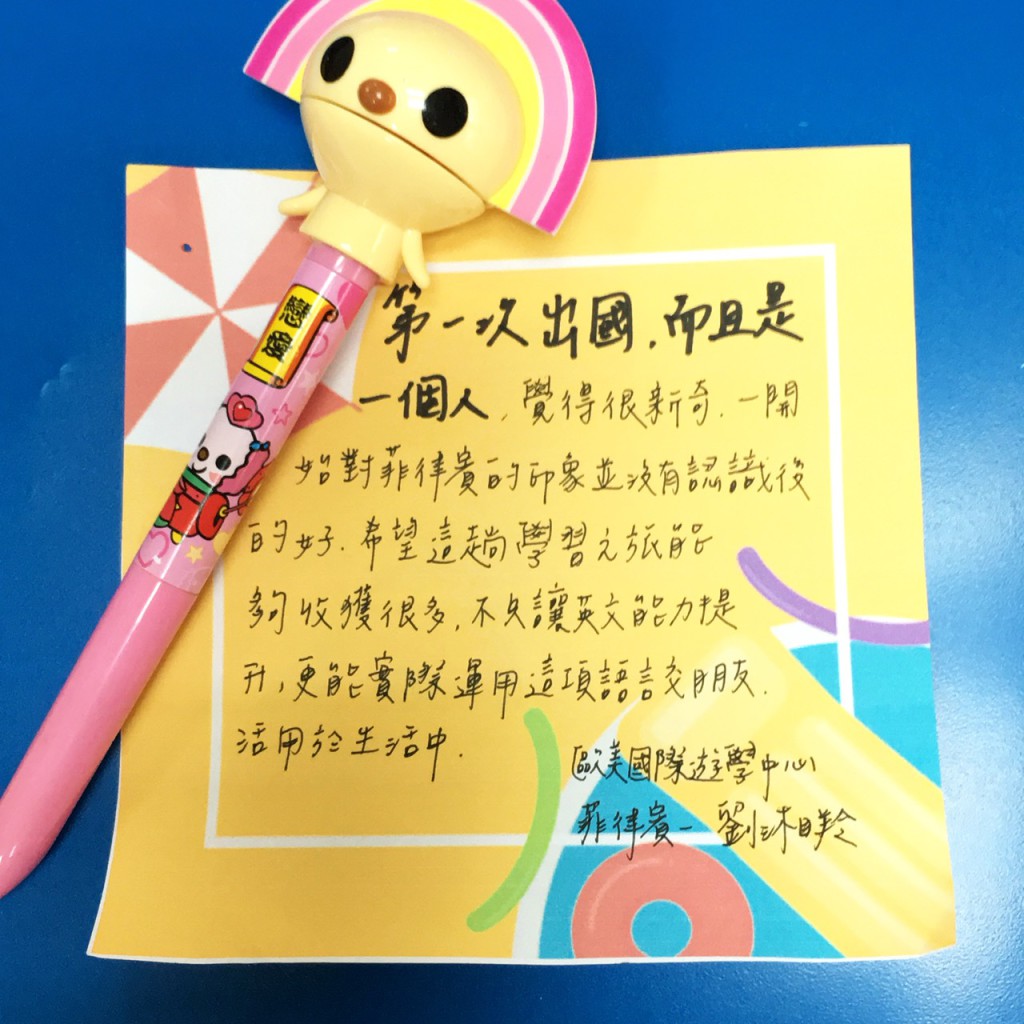 戀愛
第一次出國,而且是
一個人,覺得很新奇.一開
始對菲律賓的印象並沒有認識後
的好.希望這趟學習之旅能
夠收獲很多,不只讓英文能力提
升,更能實際運用這項語言交朋友.
活用於生活中.
歐美國際遊學中心
菲律賓-劉沐